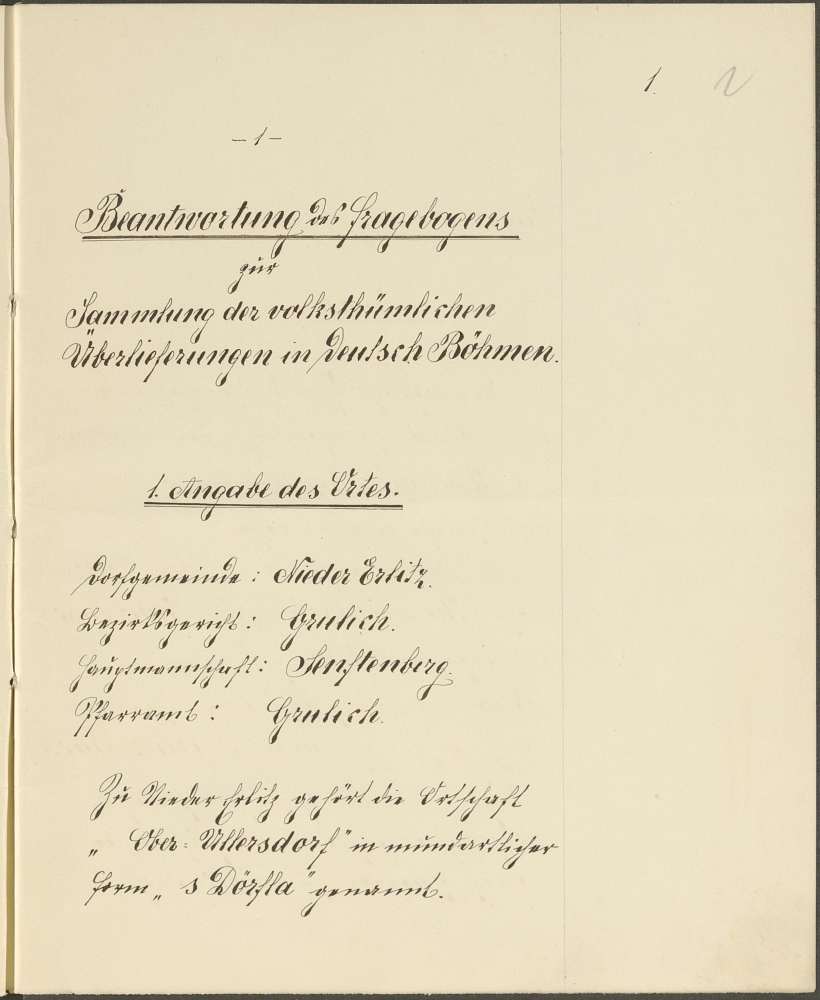 1. 2
– 1 –
Beantwortung des Fragebogens
zur
Sammlung der volksthümlichen
Überlieferungen in Deutsch Böhmen.
1. Angabe des Ortes.
Dorfgemeinde: Nieder Erlitz.
Bezirksgericht: Grulich.
Hauptmannschaft: Senftenberg.
Pfarramt: Grulich.
Zu Nieder Erlitz gehört die Ortschaft
„Ober-Ullersdorf" in mundartlicher
Form „s Dörfla" genannt.